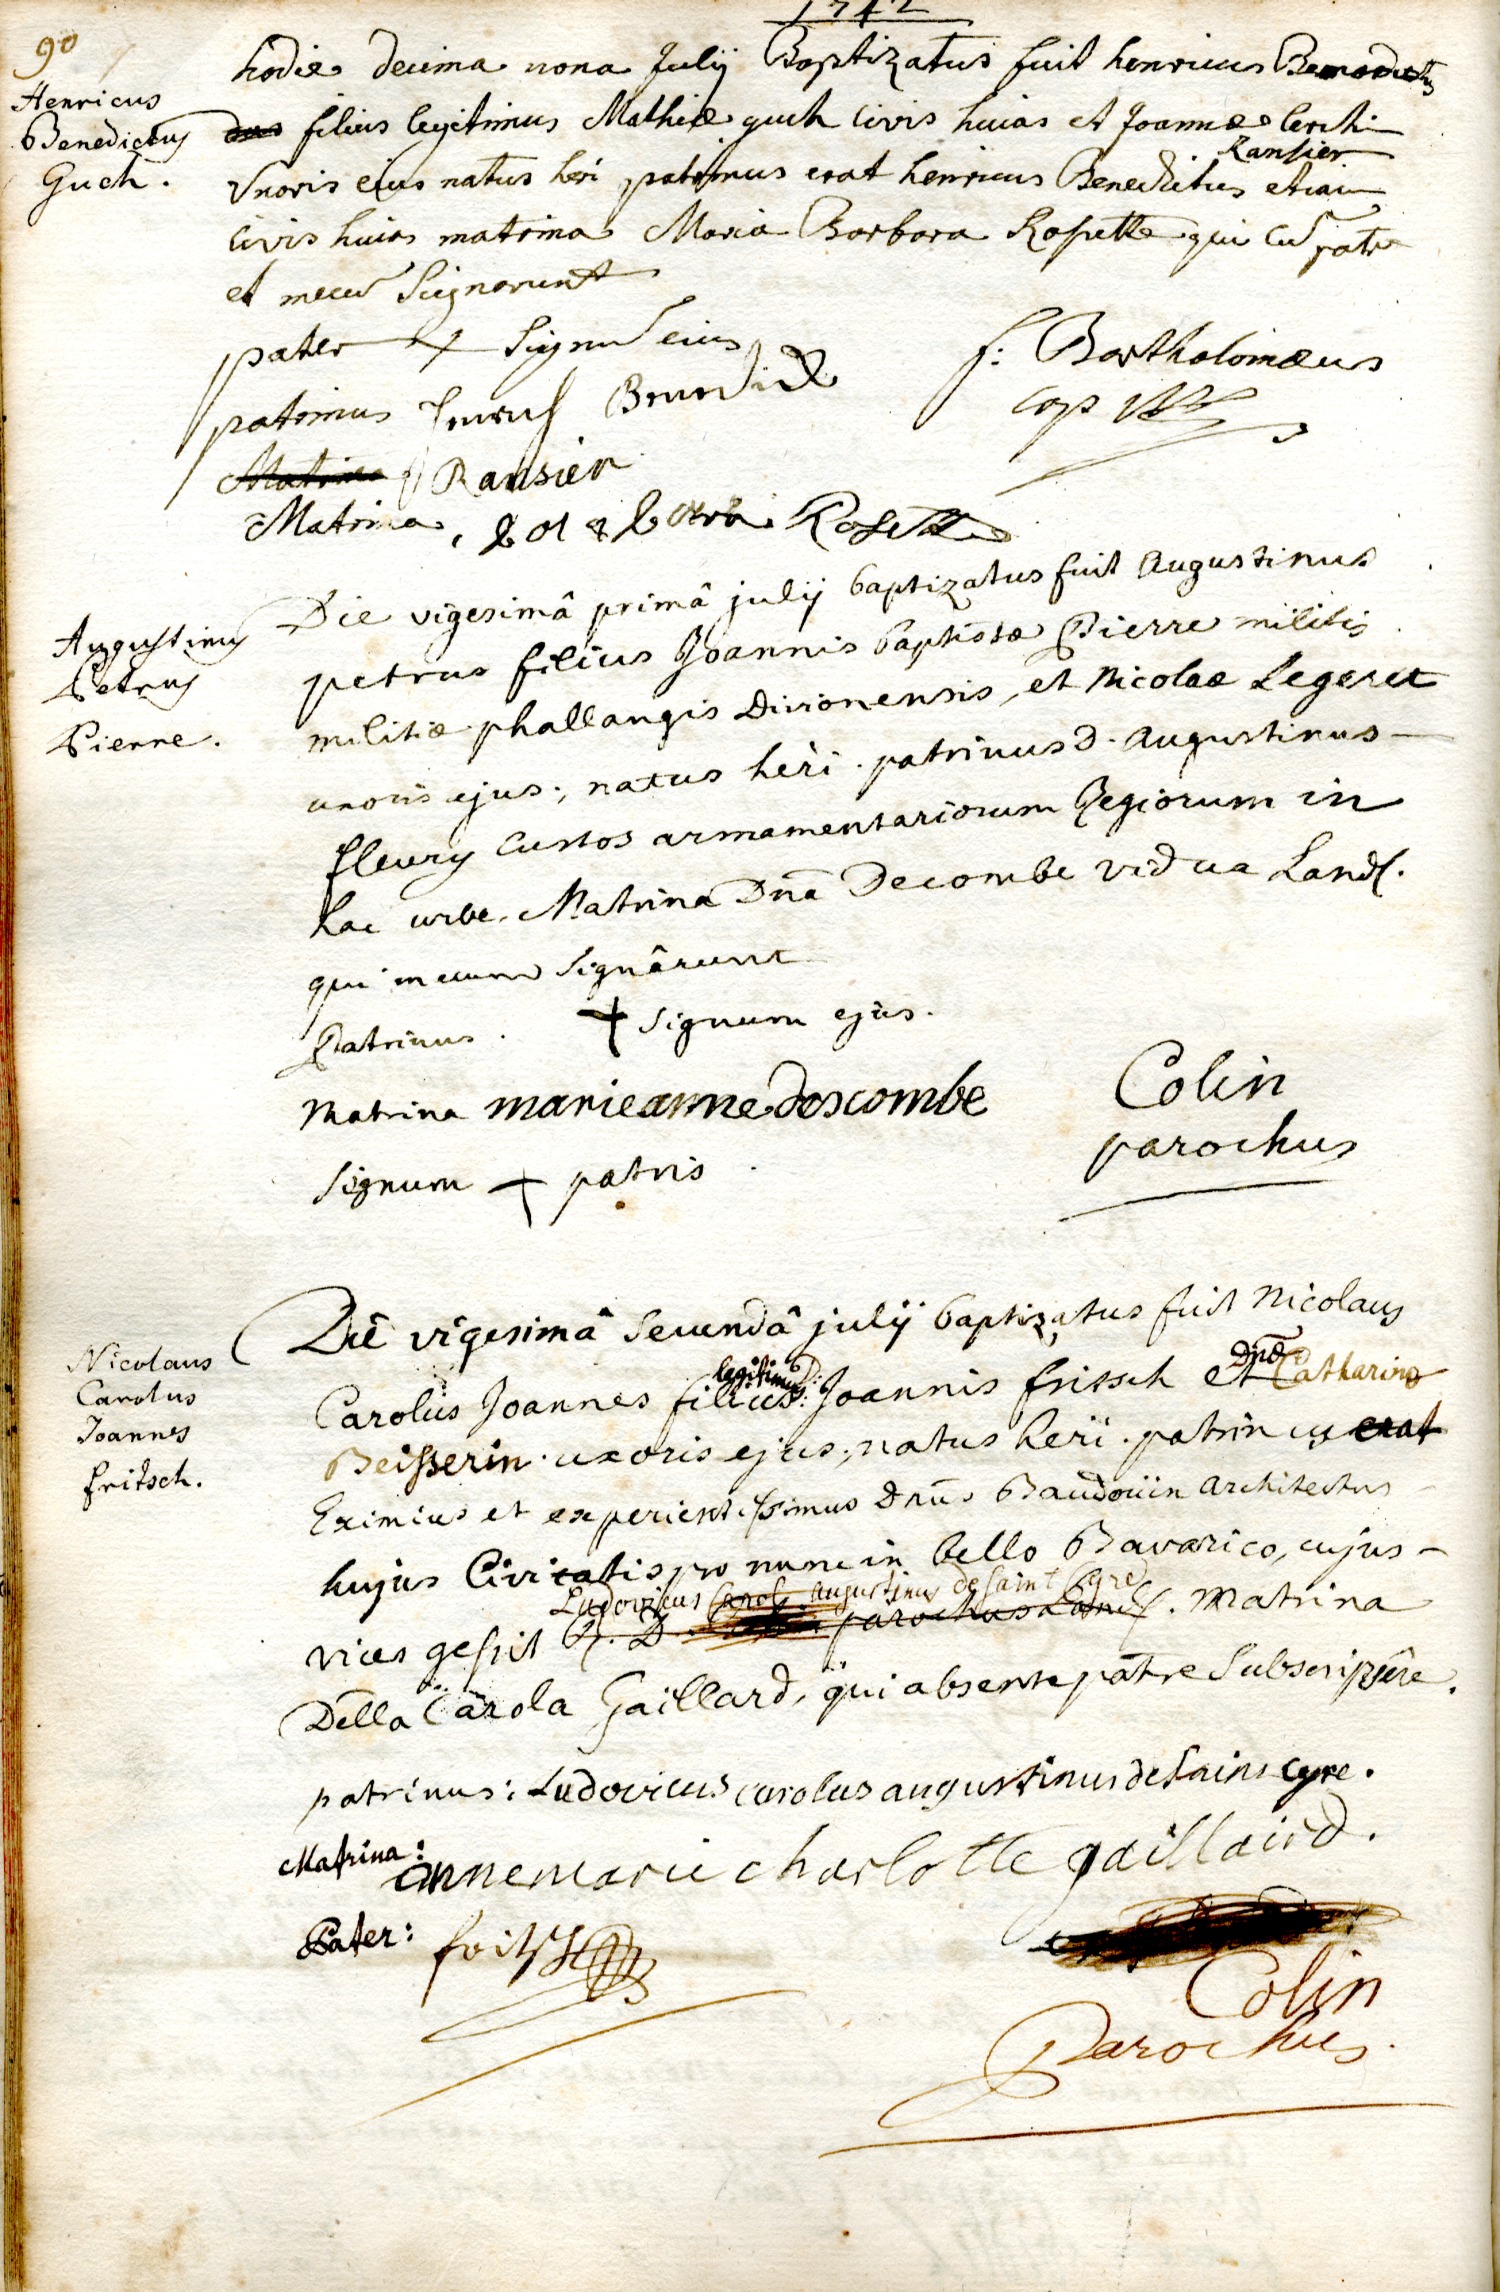 1742
90
Henricus
Benedictus
Guch.
hodie decima nona Julij Baptizatus fuit henricus Benedictus
filius legitimus Mathiæ guch civis huias et Joannæ lerch
Uxoris eius natus heri patrinus erat henricus Benedictus Ransier etiam
civis huias matrina Maria Barbara Rosette qui cu patre
et mecu Signarunt
pater + Signu eius
patrinus Benedick
f: Bartholomæus
cap
Matrina Ransier
Matrina, Rosette
Augustinus
Petrus
Pierre.
Die vigesimâ primâ julij baptizatus fuit Augustinus
petrus filius Joannis baptistæ Pierre militis
militiæ phallangis Divionensis, et Nicolae Legeret
uxoris ejus, natus heri. patrinus D. Augustinus
fleury Custos armamentariorum Regiorum in
hac urbe. Matrina Dnã Decombe vidua Land.
qui mecum Signârunt
Patrinus. + Signum ejus.
Matrina marieanne descombe
Colin
parochus
Signum + patris
Nicolaus
Carolus
Joannes
fritsch.
Die vigesimâ Secundâ julij baptizatus fuit Nicolaus
Carolus Joannes filius legitimus D: Joannis fritsch et Dnæ Catharinæ
Beisserin uxoris ejus, natus heri. patrinus erat
Eximius et experientissimus Dnūs Baudouin Architectus
hujus Civitatis pro nunc in bello Bavarico, cujus
Ludovicus Carol. Augustinus de Saint Cyre
vices gessit R. D. parochus Land. Matrina
Della Carola Gaillard, qui absente patre Subscripsêre.
patrinus: Ludovicus carolus augustinus de Saint Cyre.
Matrina: annemarie charlotte gaillaird.
Pater: fritsch
Colin
Parochus.